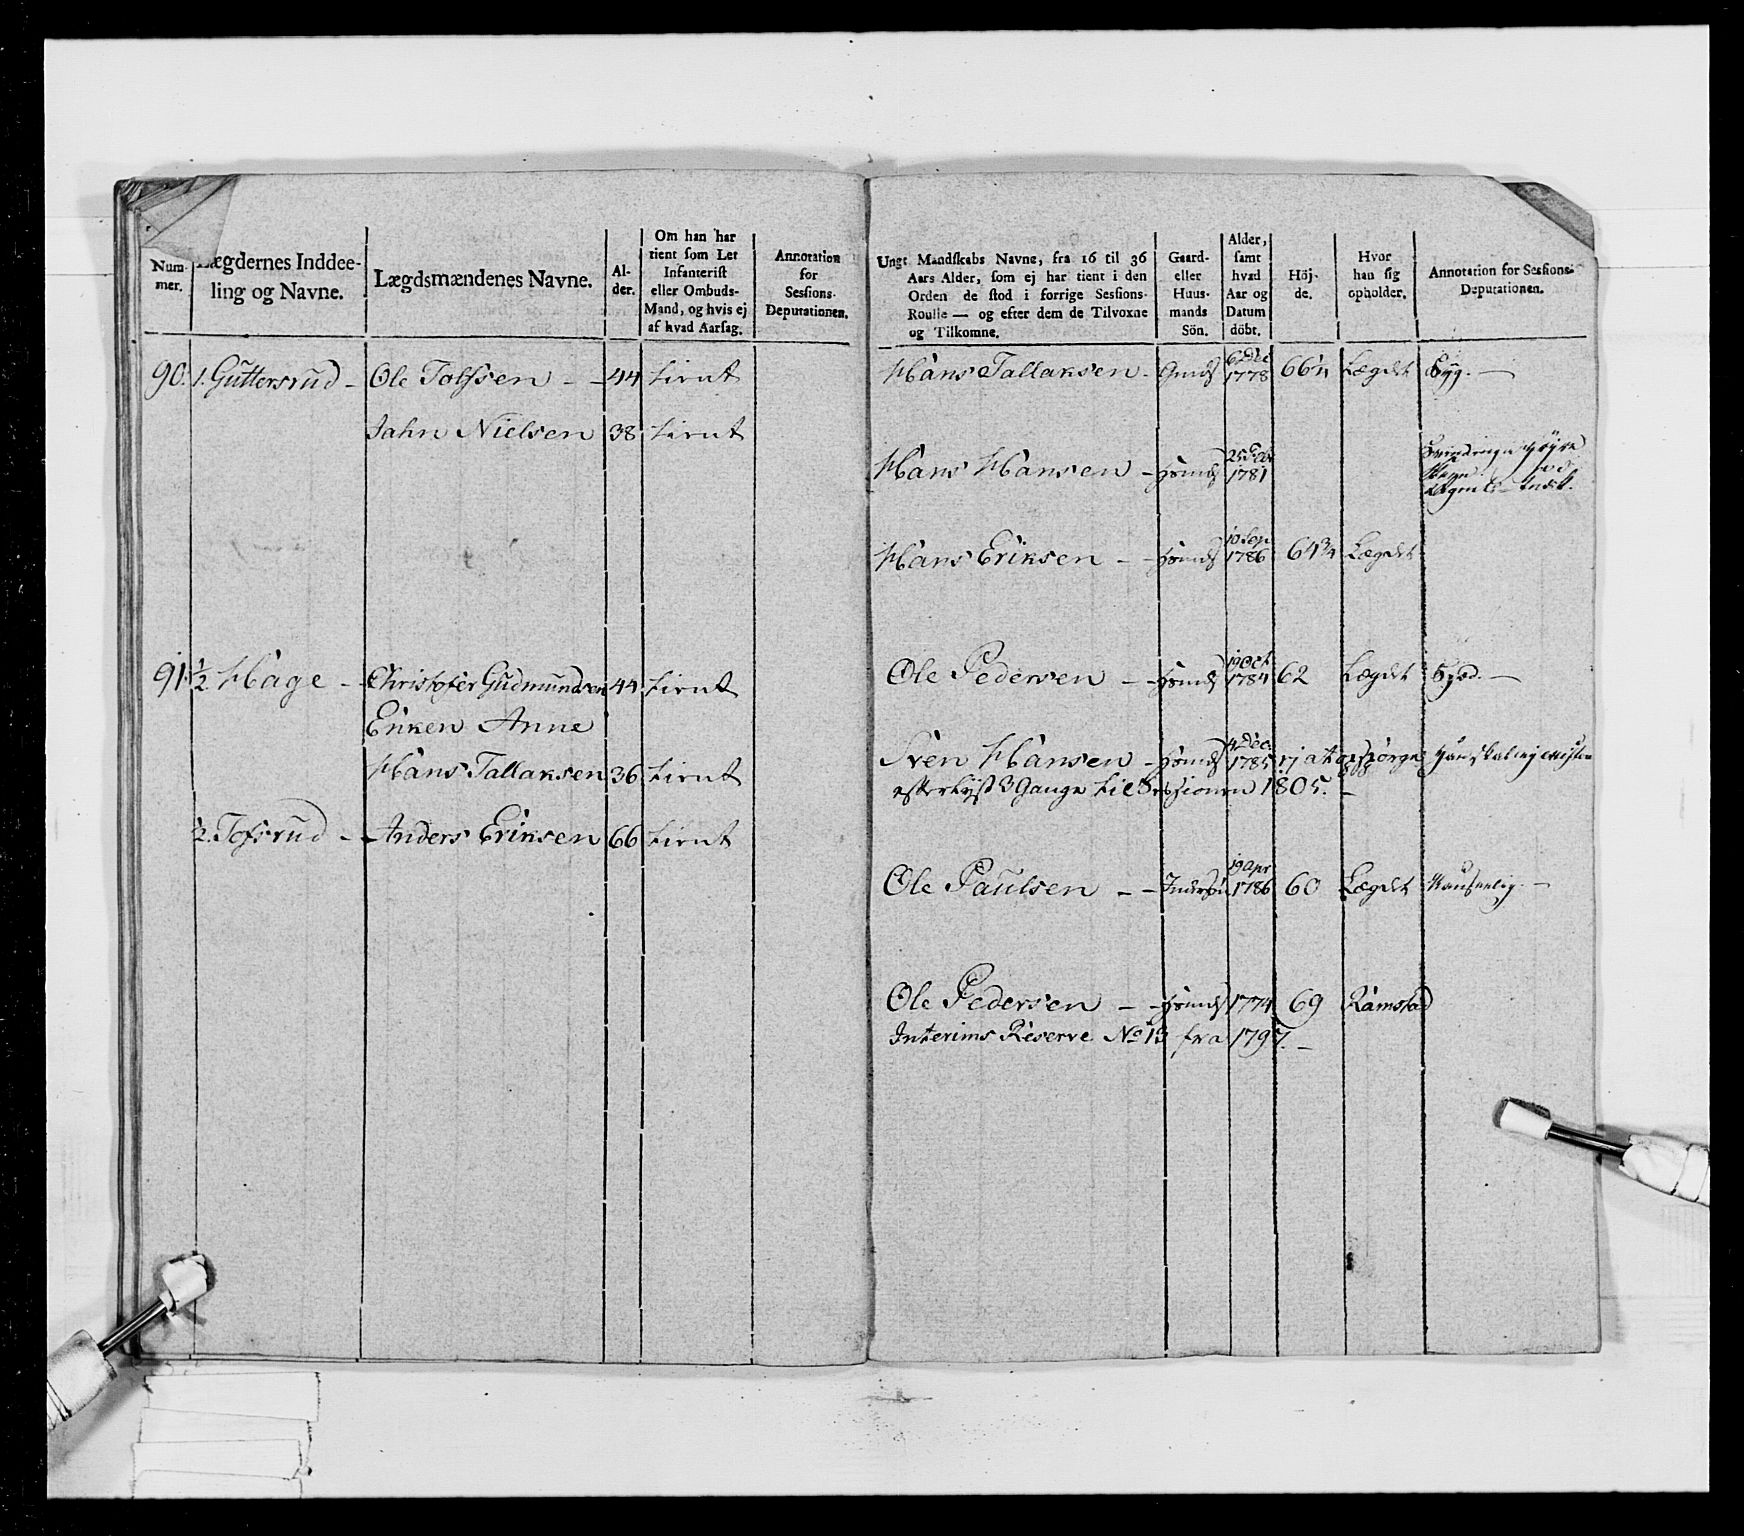 Num-
mer.
Lægdernes Inddee-
ling og Navne.
Lægdsmændenes Navne.
Al-
der.
Om han har
tient som Let
Infanterist
eller Ombuds-
Mand, og hvis ej
af hvad Aarsag.
Annotation
for
Sessions-
Deputationen.
90. 1. Guttersrud - Ole Tolfsen - - 44 tient
Jahn Nielsen 38 tient
91. 1/2 Hage - Christofer Gudmundsen 44 tient
Enken Anne
Hans Tallaksen 36 tient
1/2. Tofsrud - Anders Eriksen 66 tient
Ungt Mandskabs Navne, fra 16 til 36
Aars Alder, som ej har tient i den
Orden de stod i forrige Sessions-
Roulle — og efter dem de Tilvoxne
og Tilkomne.
Gaard-
eller
Huus-
mands
Sön.
Alder,
samt
hvad
Aar og
Datum
döbt.
Höj-
de.
Hvor
han sig
opholder.
Annotation for Sessions-
Deputationen.
6 Dec
Hans Tallaksen - Gmds 1778 66 1/2 Lægdet Syg. —
Hans Hansen - Hsmds 1781
10 Sep
Hans Eriksen - - Hsmds 1786 64 3/4 Lægdet
19 Oct
Ole Pedersen - Hsmds 1784 62 Lægdet
4 Dec.
Sven Hansen - Hsmds 1785 ej at opspörge
efterlyst 3 Gange til Sessionen 1805. -
19 Apr
Ole Paulsen - - 1786 60 Lægdet
Ole Pedersen - - Hsmds 1774 69 Ramstad
Interims Reserve No 13 fra 1797. -